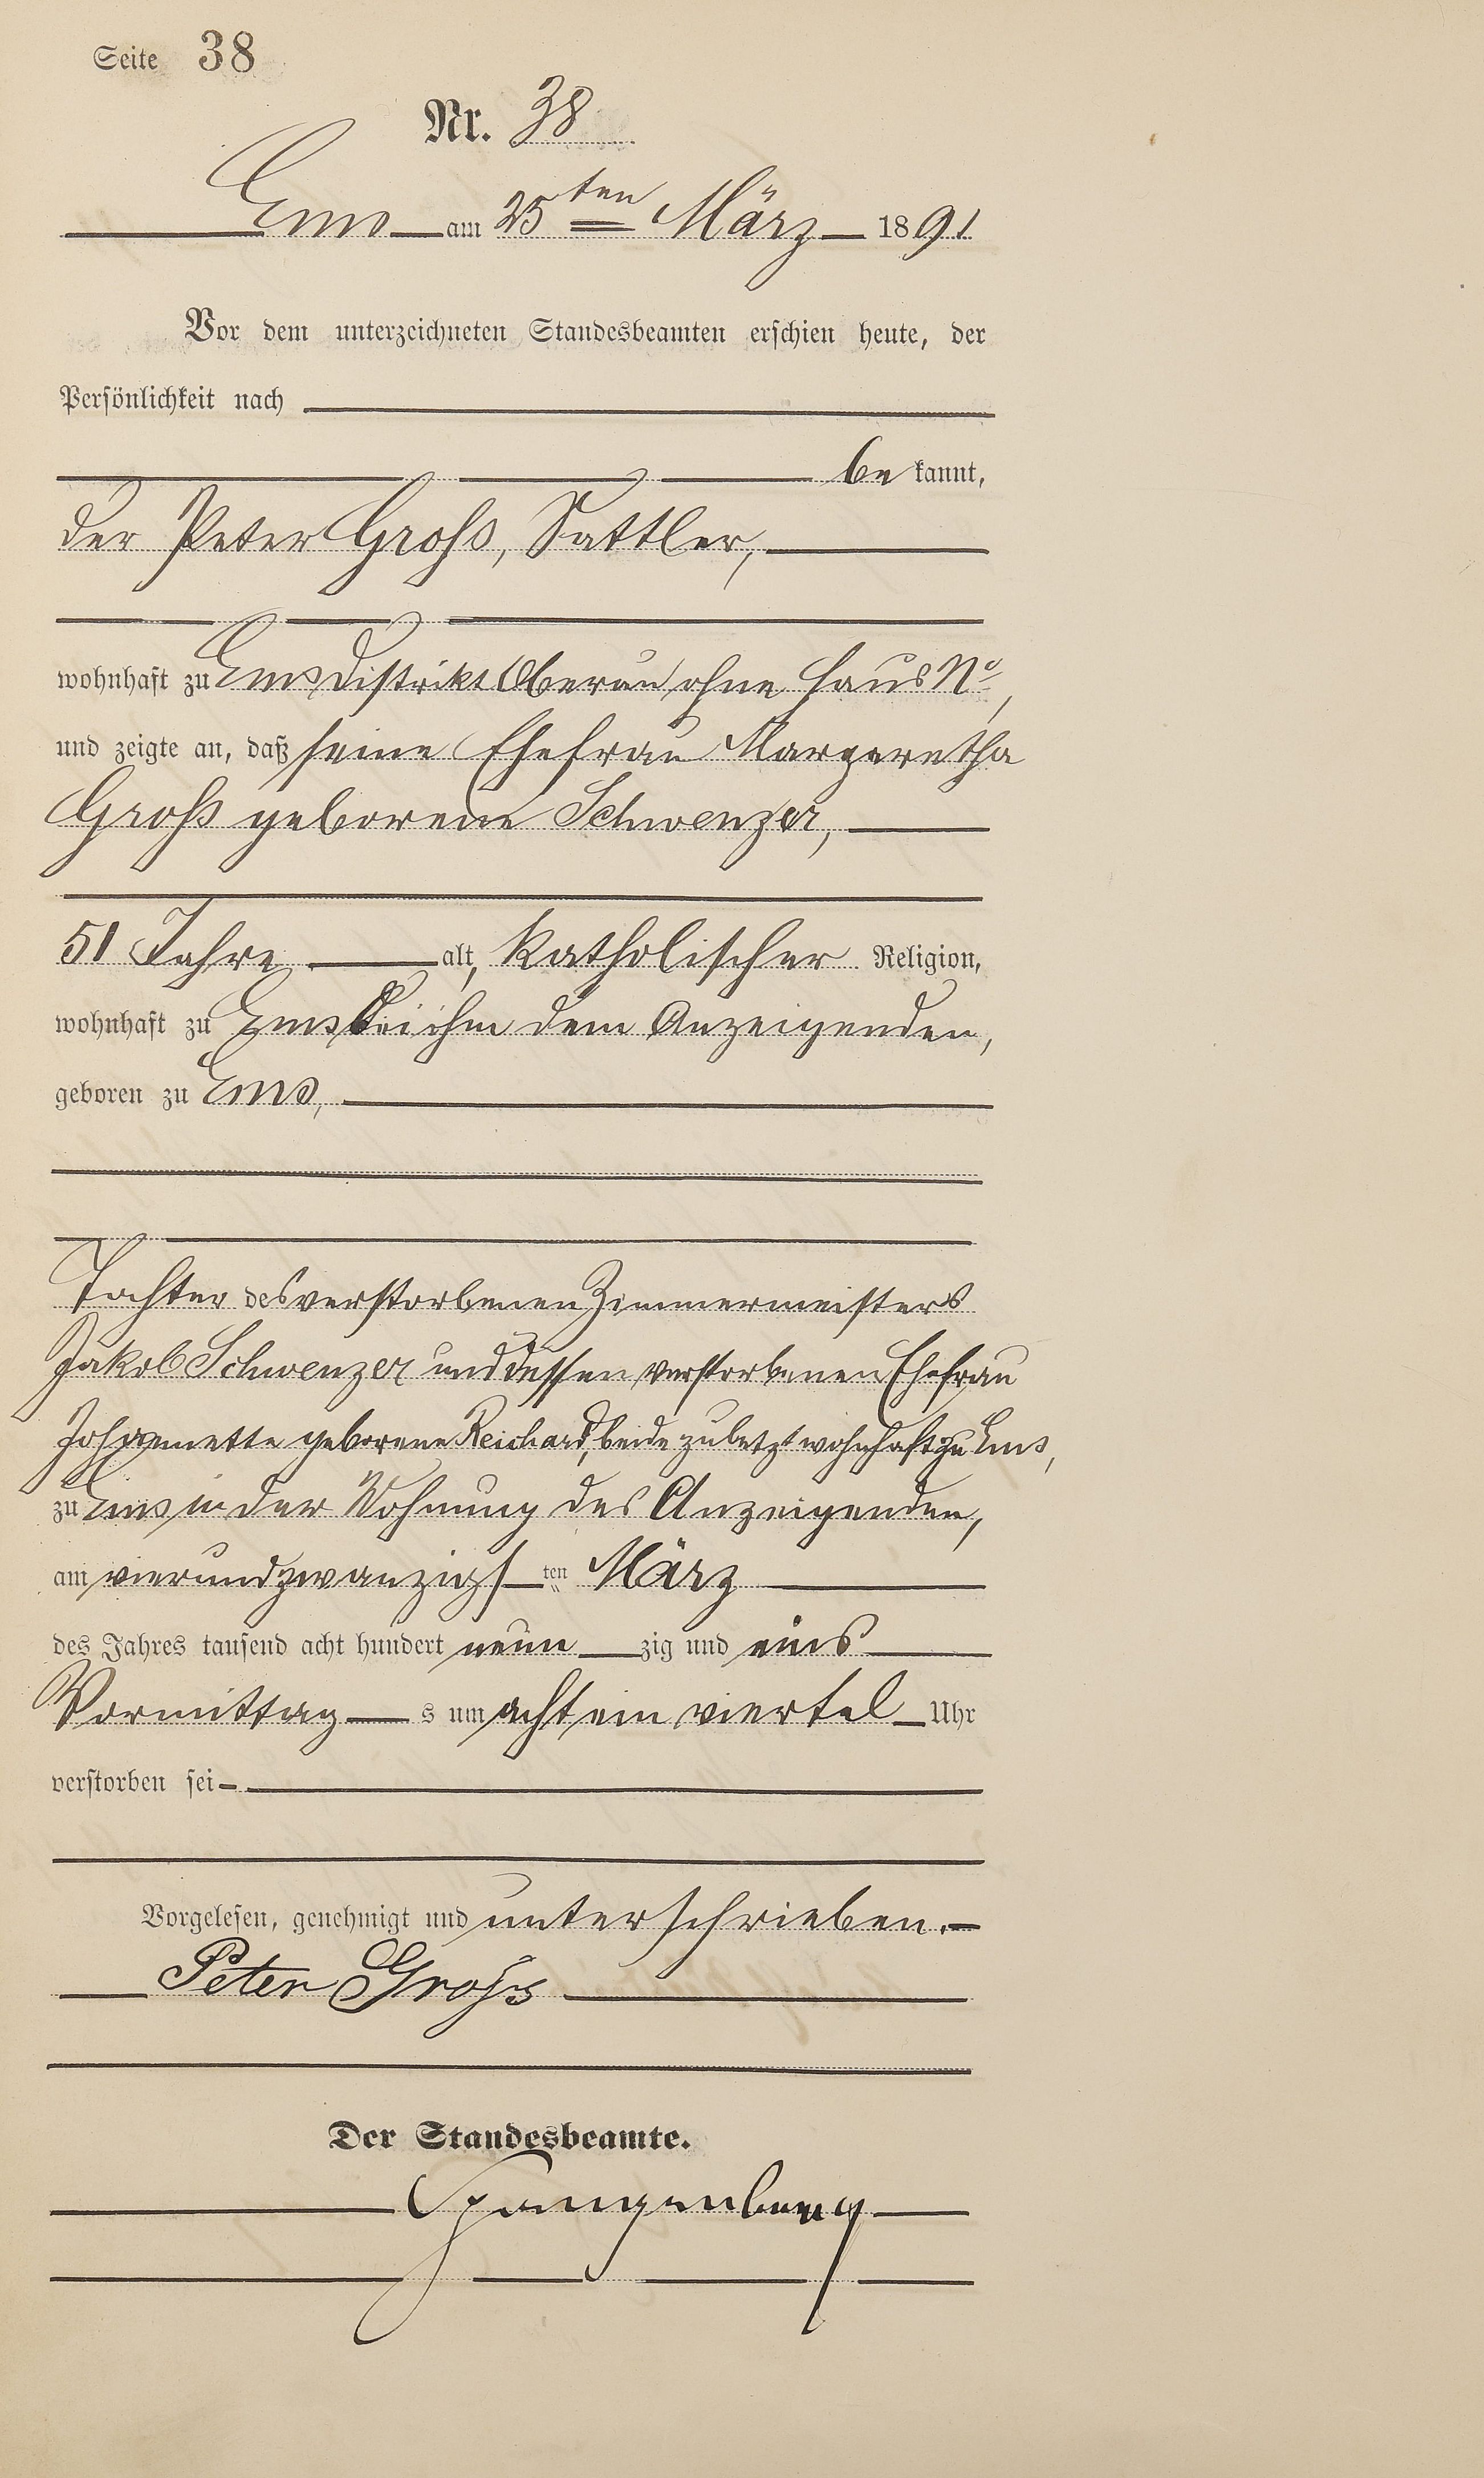 Seite 38
Nr. 38
Ems am 25ten März 1891
Vor dem unterzeichneten Standesbeamten erschien heute, der
Persönlichkeit nach
be kannt,
der Peter Groß, Sattler,
wohnhaft zu Ems Distrikt Oberau ohne Haus No,
und zeigte an, daß seine Ehefrau Margaretha
Groß geborene Schwenzer,
51 Jahre alt, katholischer Religion,
wohnhaft zu Ems bei ihm dem Anzeigenden,
geboren zu Ems,
Tochter des verstorbenen Zimmermeisters
Jakob Schwenzer und dessen verstorbenen Ehefrau
geborene Reichard, beide zuletzt wohnhaft zu Ems,
zu Ems in der Wohnung des Anzeigenden,
am vierundzwanzigsten März
des Jahres tausend acht hundert neunzig und eins
Vormittags um acht ein viertel Uhr
verstorben sei
Vorgelesen, genehmigt und unterschrieben.
Peter Groß
Der Standesbeamte.
Spangenberg